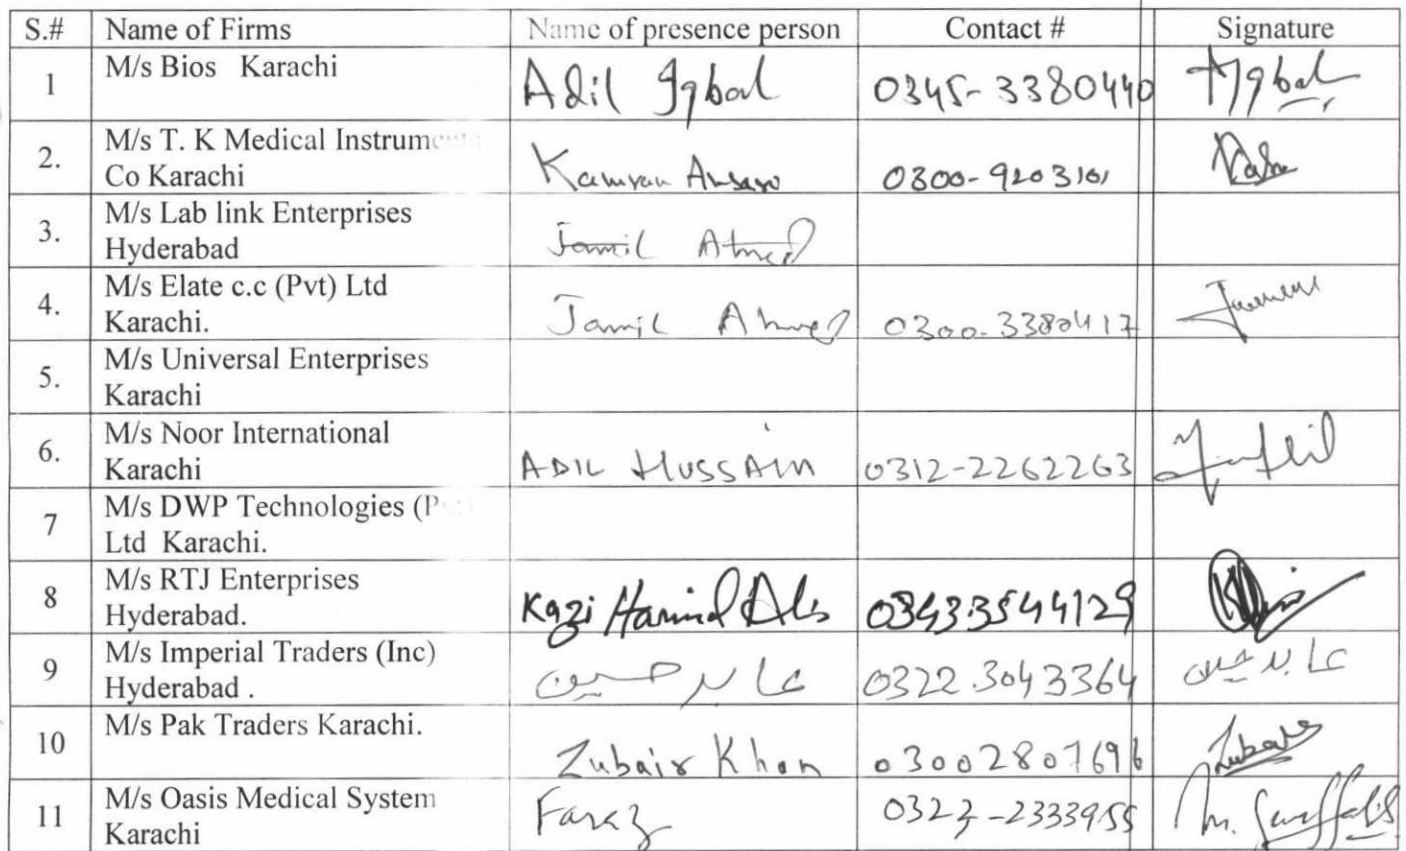 S.# Name of Firms Name of presence person Contact # Signature
1 M/s Bios Karachi Adil Iqbal 0345-3380440 AIqbal
2. M/s T. K Medical Instruments
Co Karachi Kamran Ansari 0300-9203101
3. M/s Lab link Enterprises
Hyderabad Jamil Ahmed
4. M/s Elate c.c (Pvt) Ltd
Karachi. Jamil Ahmed 0300-3380417
5. M/s Universal Enterprises
Karachi
6. M/s Noor International
Karachi ADIL HUSSAIN 0312-2262263
7 M/s DWP Technologies (P
Ltd Karachi.
8 M/s RTJ Enterprises
Hyderabad. Kazi Hamid Ali 03433544129
9 M/s Imperial Traders (Inc)
Hyderabad . عابد حسین 0322.3043364 عابد حسین
10 M/s Pak Traders Karachi. Zubair Khan 03002807696 Zubair
11 M/s Oasis Medical System
Karachi Faraz 0323-2333955